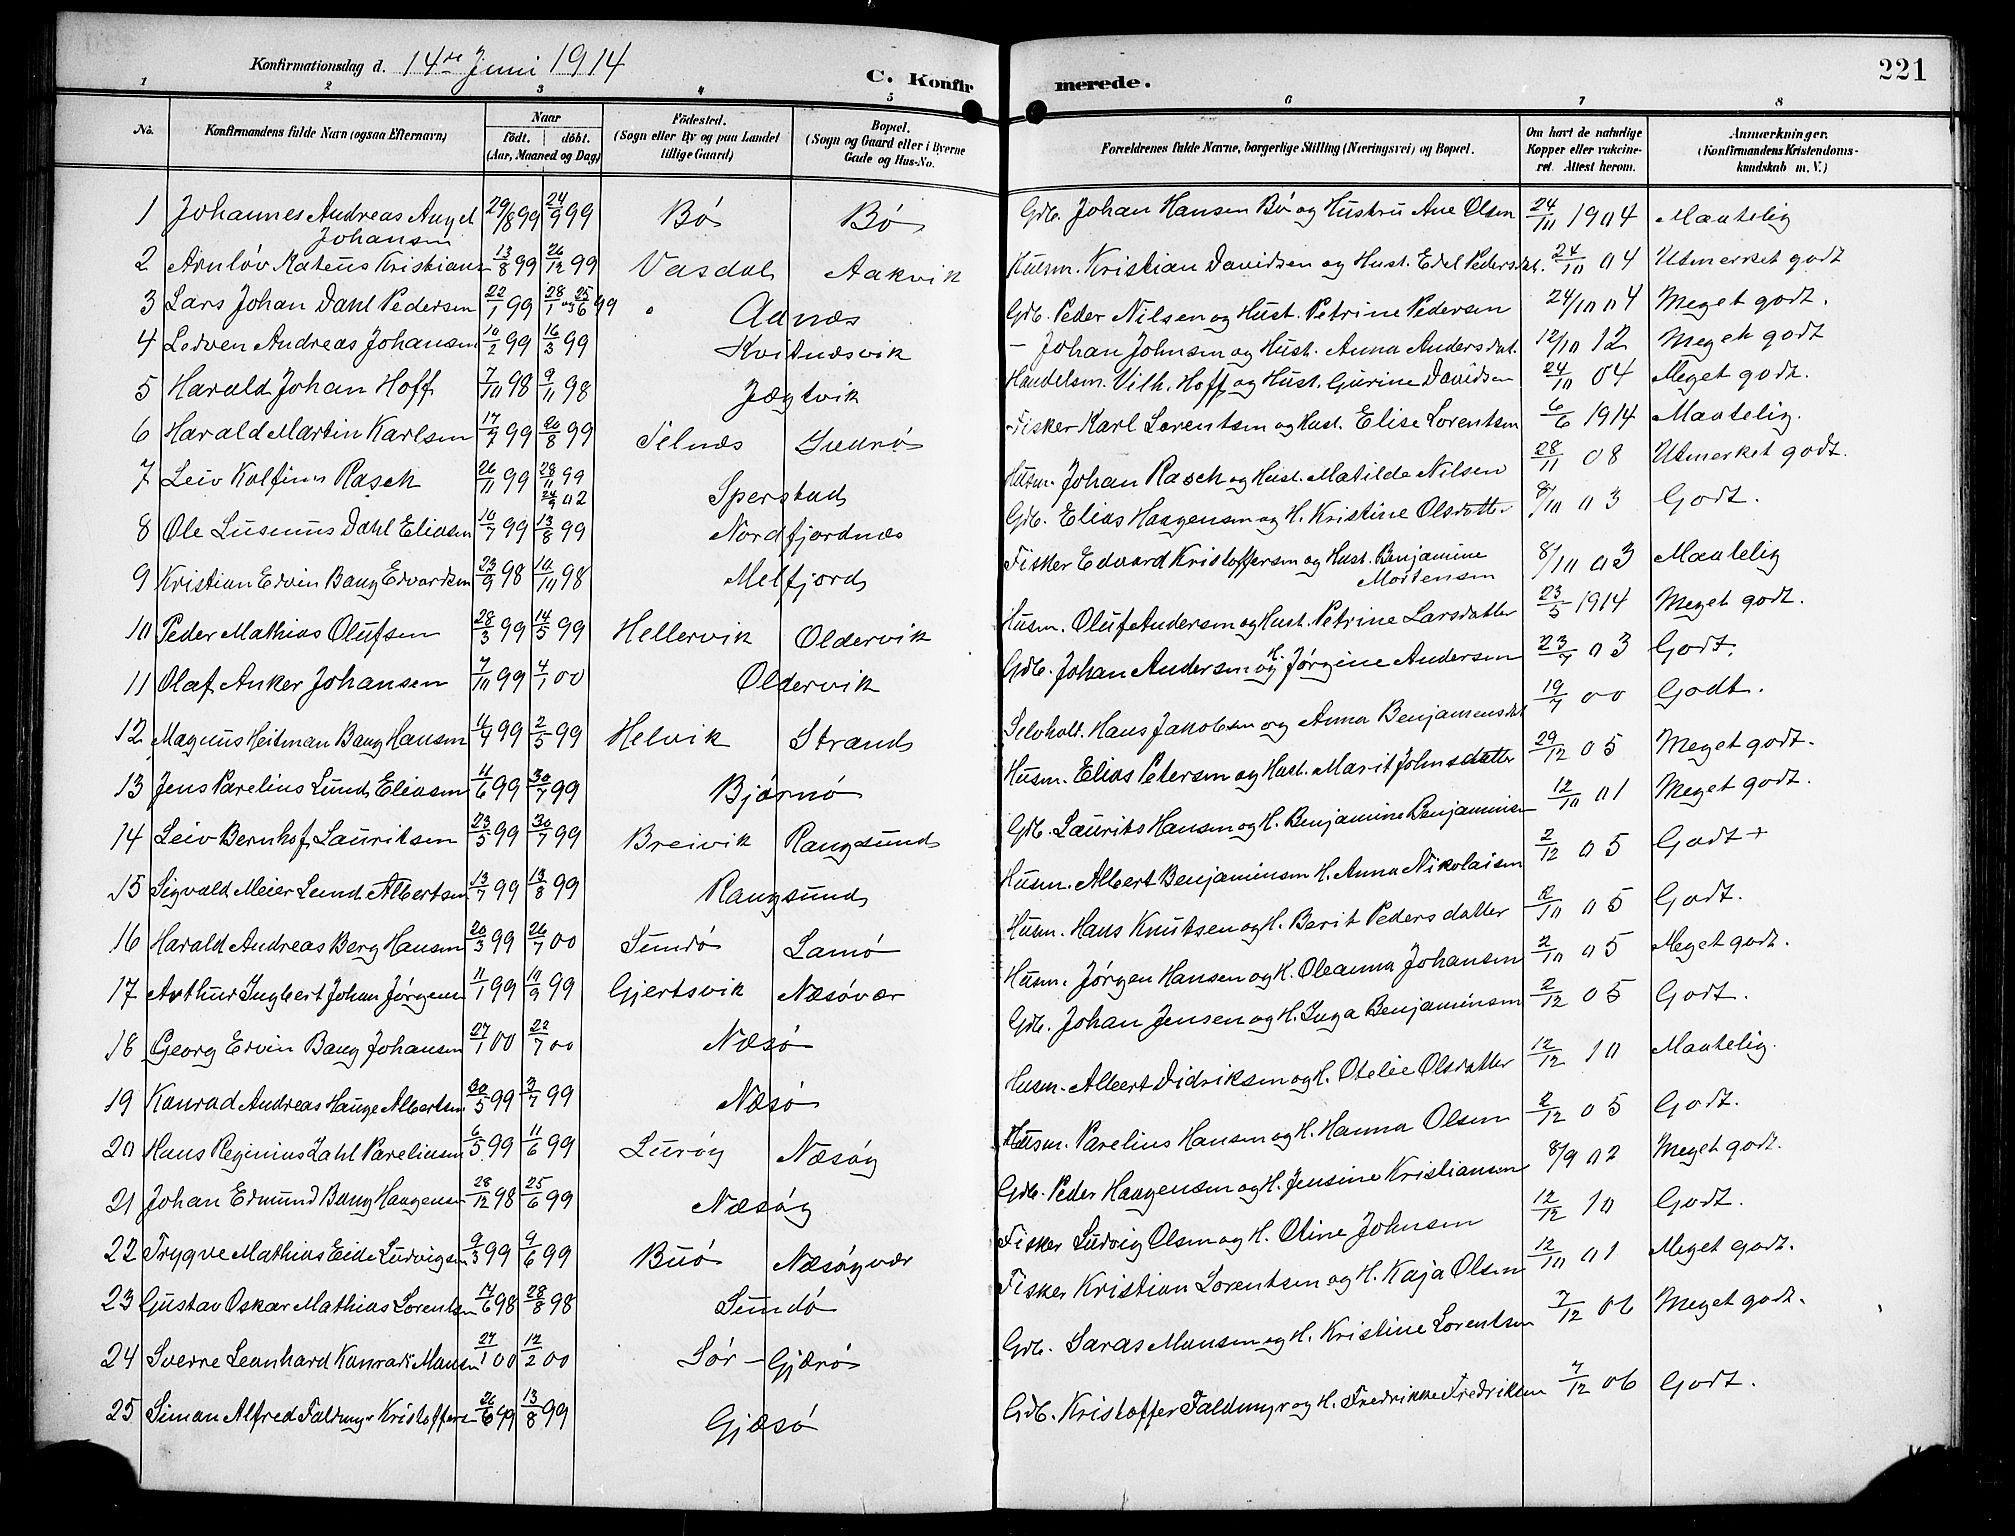 Konfirmationsdag d. 14de Juni 1914
C. Konfirmerede.
221
1 2 3 4 5 6 7 8
No. Konfirmandens fulde Navn (ogsaa Efternavn) Naar födt. döbt. (Aar, Maaned og Dag) Födested. (Sogn eller By og paa Landet tillige Gaard) Bopæl. (Sogn og Gaard eller i Byerne Gade og Hus-No. Forældrenes fulde Navne, borgerlige Stilling (Næringsvei) og Bopæl. Om havt de naturlige Kopper eller vaccineret. Attest herom. Anmærkninger. (Konfirmandens Kristendomskundskab m. V.)
1 Johannes Andreas Angel Johansen 29/8 99 24/9 99 Bö Bö Gdb. Johan Hansen Bö og Hustru Ane Olsen 24/10 1904 Maatelig
2 Arnlöv Mateus Kristians 13/8 99 26/12 99 Vasdal Aakvik Husm. Kristian Davidsen og Hust. Edel Pedersdat. 24/10 04 Utmerket godt
3 Lars Johan Dahl Pedersen 22/1 99 28/1 og 25/6 99 " Aanæs Gdb. Peder Nilsen og Hust. Petrine Pedersen 24/10 04 Meget godt.
4 Ledven Andreas Johansen 10/2 99 16/3 99 Kvitnæsvik – Johan Johnsen og Hust. Anna Andersdat. 12/10 12 Meget godt
5 Harald Johan Hoff 7/10 98 9/11 98 Jægtvik Handelsm. Vilh. Hoff og Hust. Gurine Davidsen 24/10 04 Meget godt.
6 Harald Martin Karlsen 17/7 99 20/8 99 Selnæs Fisker Karl Lorentsen og Hust. Elise Lorentsen 6/6 1914 Maatelig.
7 Leiv Kolfinn Rasch 26/11 99 28/11 99 24/9 02 Sperstad Husm. Johan Rasch og Hust. Matilde Nilsen 28/11 08 Utmerket godt.
8 Ole Dahl Eliasen 10/7 99 13/8 99 Nordfjordnæs Gdb. Elias Haagensen og H. Kristine Olsdatter 8/10 03 Godt.
9 Kristian Edvin Bang Edvardsen 23/9 98 10/10 98 Melfjord Fisker Edvard Kristoffersen og Hust. Benjamine Mortensen 8/10 03 Maatelig
10 Peder Mathias Olufsen 28/3 99 14/5 99 Hellervik Oldervik Husm. Oluf Andersen og Hust. Petrine Larsdatter 23/5 1914 Meget godt.
11 Olaf Anker Johansen 7/10 99 4/1 00 Oldervik Gdb. Johan Andersen og H. Jörgine Andersen 23/7 03 Godt.
12 Magnus Heitman Bang Hansen 4/4 99 2/5 99 Helvik Strand Selvhold. Hans Jakobsen og Anna Benjaminsdat 19/7 00 Godt.
13 Jens Parelius Lund Eliasen 11/6 99 30/7 99 Bjärnö Husm. Elias Petersen og Hust. Marit Johnsdatter 29/12 05 Meget godt.
14 Leiv Bernhof Lauritsen 23/5 99 30/7 99 Breivik Rangsund Gdb. Laurits Hansen og H. Benjamine Benjaminsen 12/10 01 Meget godt.
15 Sigvald Meier Lund Albertsen 13/7 99 13/8 99 Rangsund Husm. Albert Benjaminsen H. Anna Nikolaisen 2/12 05 Godt +
16 Harald Andreas Berg Hansen 20/3 99 26/7 00 Sundö Lamö Husm. Hans Knutsen og H. Berit Pedersdatter 2/10 05 Godt.
17 Arthur Ingbert Johan Jørgens 11/1 99 10/9 99 Gjertsvik Næsövær Husm. Jörgen Hansen og H. Oleanna Johansen 2/10 05 Meget godt.
18 Georg Edvin Bang Johansen 27/1 00 22/7 00 Næsö Gdb. Johan Jensen og H. Inga Benjaminsen 2/12 05 Godt.
19 Konrad Andreas Hauge Albertsen 30/5 99 3/7 99 Næsö Husm. Albert Didriksen og H. Otelie Olsdatter 12/12 10 Maatelig.
20 Hans Reginius Dahl Pareliusen 6/5 99 11/6 99 Luröy Næsöy Husm. Parelius Hansen og H. Hanna Olsen 2/12 05 Godt.
21 Johan Edmund Bang Haagensen 28/12 98 25/6 99 Næsöy Gdb. Peder Haagensen og H. Jensine Kristiansen 8/9 02 Meget godt.
22 Trygve Mathias Eide Ludvigsen 9/3 99 9/6 99 Buö Næsöyvær Fisker Ludvig Olsen og H. Oline Johnsen 12/12 10 Godt.
23 Gustav Oskar Mathias Lorentsen 14/6 98 28/8 98 Sundö Fisker Kristian Lorentsen og H. Kaja Olsen 12/10 01 Meget godt.
24 Sverre Leonhard Konradi Monsen 27/1 00 12/2 00 Sör-Gjærö Gdb. Saras Monsen og H. Kristine Lorentsen 7/12 06 Meget godt.
25 Simon Alfred Faldmyr Kristoffers 26/6 99 13/8 99 Gjæsö Gdb. Kristoffer Faldmyr og H. Fredrikke Fredriksen 7/12 06 Godt.